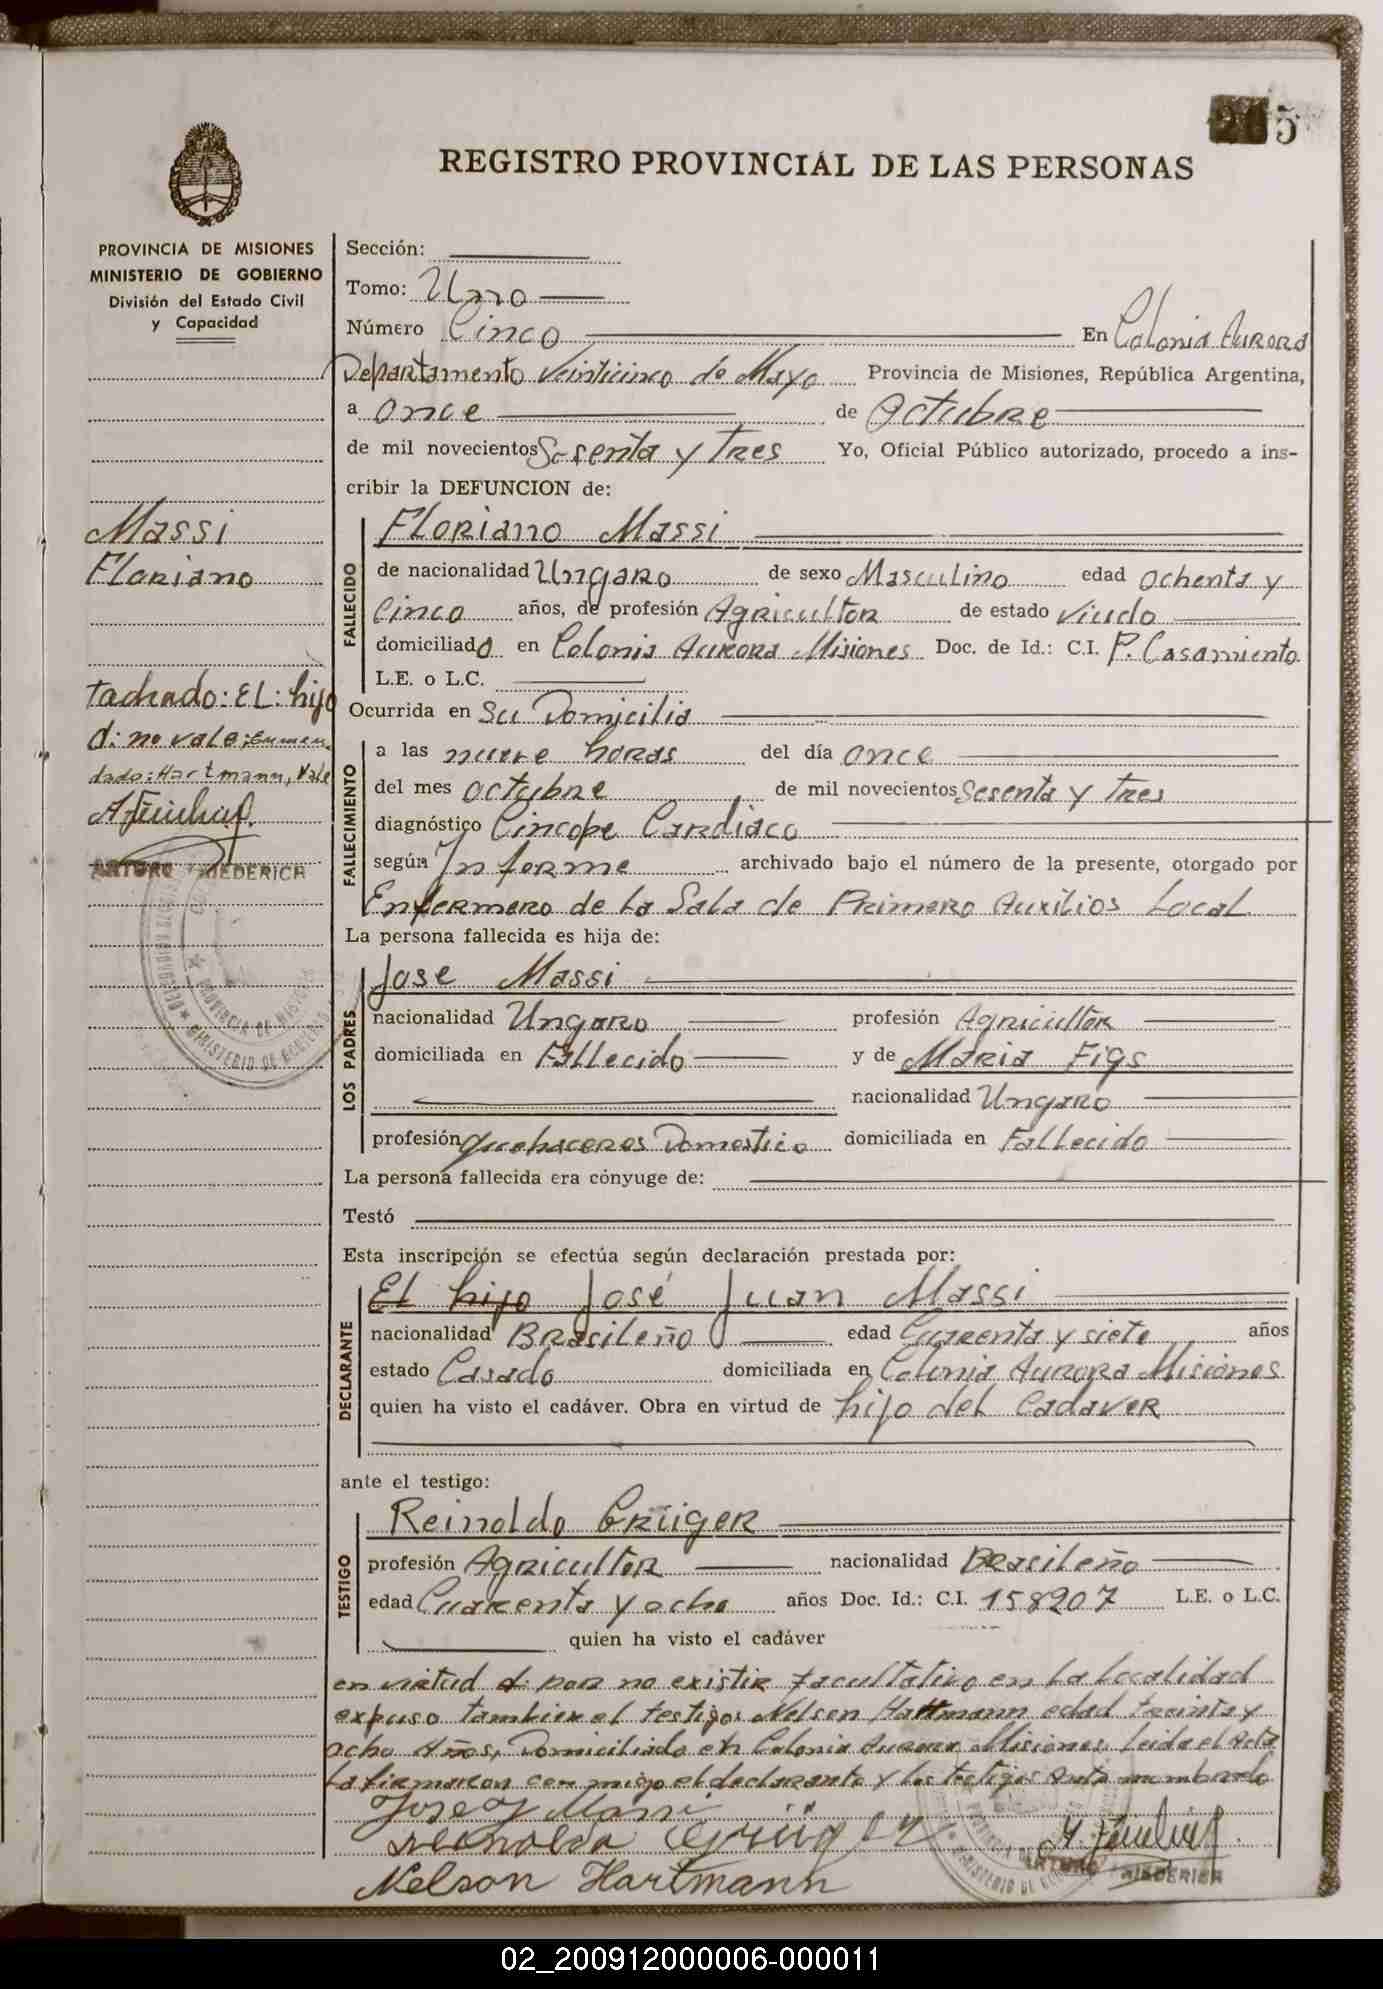 5
REGISTRO PROVINCIAL DE LAS PERSONAS
PROVINCIA DE MISIONES
MINISTERIO DE GOBIERNO
División del Estado Civil
y Capacidad
Massi
Floriano
tachado: EL: hijo
d: no vale: enmen
dado: Hartmann, Vale
ARTURO
Sección:
Tomo: Uno
Número Cinco En Colonia Aurora
Departamento Veinticinco de Mayo Provincia de Misiones, República Argentina,
a once de Octubre
de mil novecientos Sesenta y Tres Yo, Oficial Público autorizado, procedo a ins-
cribir la DEFUNCION de:
FALLECIDO
Floriano Massi
de nacionalidad Ungaro de sexo Masculino edad ochenta y
Cinco años, de profesión Agricultor de estado viudo
domiciliado en Colonia Aurora Misiones Doc. de Id.: C.I. P. Casamiento
L.E. o L.C.
Ocurrida en Su Domicilio
FALLECIMIENTO
a las nueve horas del día once
del mes octubre de mil novecientos Sesenta y Tres
diagnóstico Cincope Cardiaco
según Informe archivado bajo el número de la presente, otorgado por
Enfermero de La Sala de Primero Auxilios Local
La persona fallecida es hija de:
LOS PADRES
Jose Massi
nacionalidad Ungaro profesión Agricultor
domiciliada en Fallecido y de Maria Figs
nacionalidad Ungaro
profesión Quehaceres Domestico domiciliada en Fallecido
La persona fallecida era cónyuge de:
Testó
Esta inscripción se efectúa según declaración prestada por:
DECLARANTE
El hijo José Juan Massi
nacionalidad Brasileño edad Cuarenta y siete años
estado Casado domiciliada en Colonia Aurora Misiones
quien ha visto el cadáver. Obra en virtud de hijo del Cadaver
ante el testigo:
TESTIGO
Reinoldo Grüiger
profesión Agricultor nacionalidad Brasileño
edad Cuarenta y ocho años Doc. Id.: C.I. 158207 L.E. o L.C.
quien ha visto el cadáver
en virtud d: por no existir facultativo en La Localidad
expuso tambien el testigo: Nelson Hartmann edad treinta y
ocho Años, Domiciliado en Colonia Aurora Misiones Leida el Acta
La firmaron con migo el declarante y los testigos
Jose J Massi
Reinoldo
Nelson Hartmann
ARTURO
02_200912000006-000011